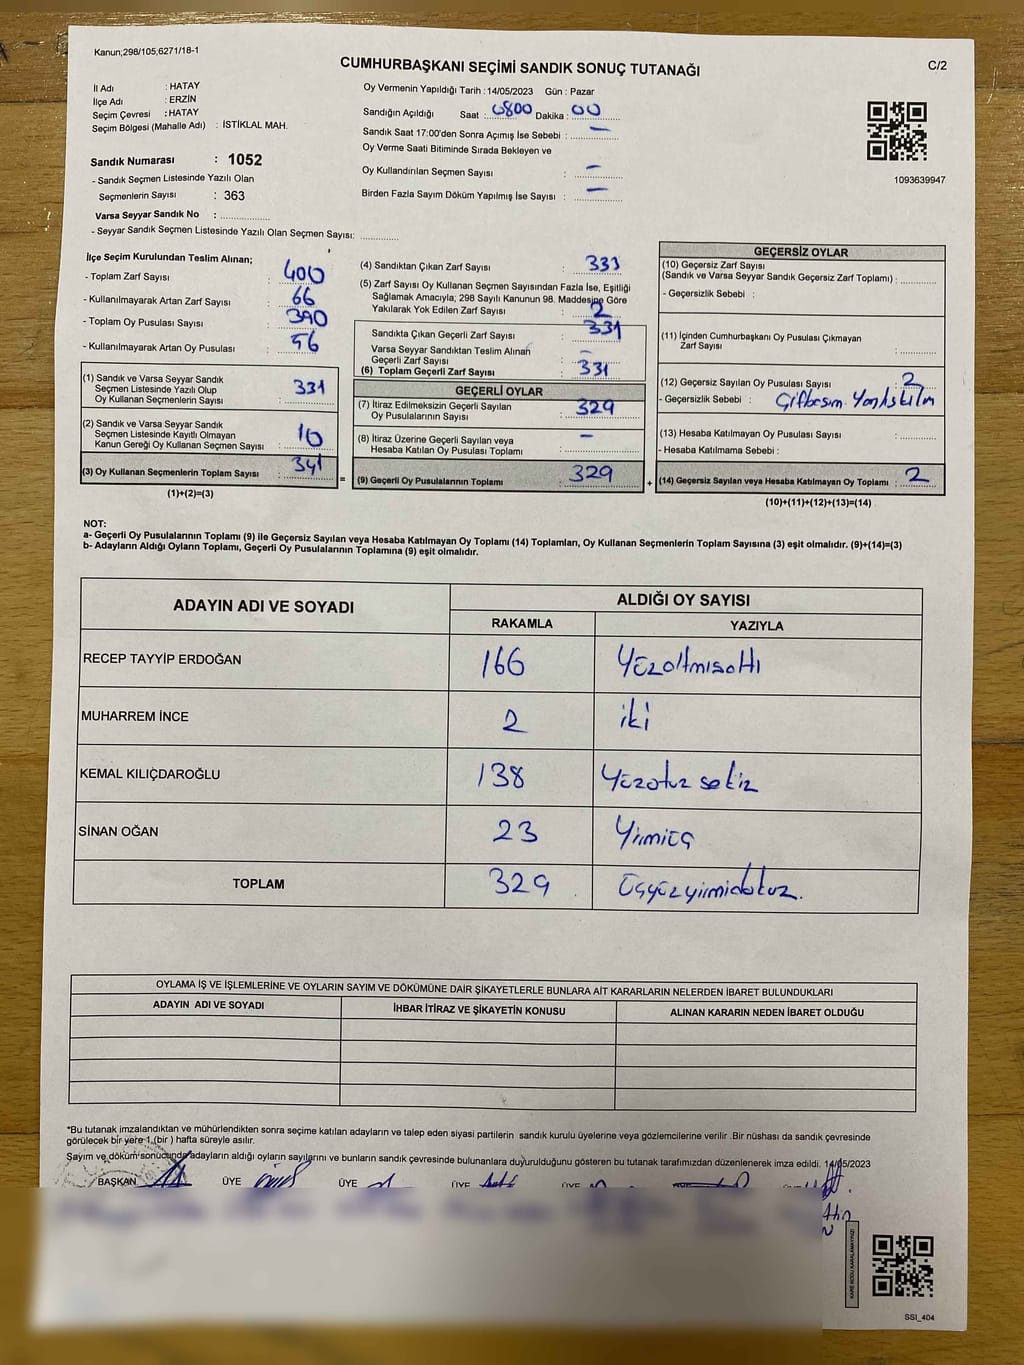 Kanun;298/105,6271/18-1
CUMHURBAŞKANI SEÇİMİ SANDIK SONUÇ TUTANAĞI
C/2
İl Adı : HATAY
İlçe Adı : ERZİN
Seçim Çevresi : HATAY
Seçim Bölgesi (Mahalle Adı) : İSTİKLAL MAH.
Sandık Numarası : 1052
- Sandık Seçmen Listesinde Yazılı Olan
Seçmenlerin Sayısı : 363
Varsa Seyyar Sandık No :
- Seyyar Sandık Seçmen Listesinde Yazılı Olan Seçmen Sayısı:
Oy Vermenin Yapıldığı Tarih : 14/05/2023 Gün : Pazar
Sandığın Açıldığı Saat : 0800 Dakika : 00
Sandık Saat 17:00'den Sonra Açımış İse Sebebi : -
Oy Verme Saati Bitiminde Sırada Bekleyen ve
Oy Kullandırılan Seçmen Sayısı : -
Birden Fazla Sayım Döküm Yapılmış İse Sayısı : -
1093639947
İlçe Seçim Kurulundan Teslim Alınan;
- Toplam Zarf Sayısı : 400
- Kullanılmayarak Artan Zarf Sayısı : 66
- Toplam Oy Pusulası Sayısı : 390
- Kullanılmayarak Artan Oy Pusulası : 56
(1) Sandık ve Varsa Seyyar Sandık
Seçmen Listesinde Yazılı Olup
Oy Kullanan Seçmenlerin Sayısı : 331
(2) Sandık ve Varsa Seyyar Sandık
Seçmen Listesinde Kayıtlı Olmayan
Kanun Gereği Oy Kullanan Seçmen Sayısı : 10
(3) Oy Kullanan Seçmenlerin Toplam Sayısı : 341
(1)+(2)=(3)
(4) Sandıktan Çıkan Zarf Sayısı : 333
(5) Zarf Sayısı Oy Kullanan Seçmen Sayısından Fazla İse, Eşitliği
Sağlamak Amacıyla; 298 Sayılı Kanunun 98. Maddesine Göre
Yakılarak Yok Edilen Zarf Sayısı : 2
Sandıkta Çıkan Geçerli Zarf Sayısı : 331
Varsa Seyyar Sandıktan Teslim Alınan
Geçerli Zarf Sayısı : -
(6) Toplam Geçerli Zarf Sayısı : 331
GEÇERLİ OYLAR
(7) İtiraz Edilmeksizin Geçerli Sayılan
Oy Pusulalarının Sayısı : 329
(8) İtiraz Üzerine Geçerli Sayılan veya
Hesaba Katılan Oy Pusulası Toplamı : -
(9) Geçerli Oy Pusulalarının Toplamı : 329
=
+
GEÇERSİZ OYLAR
(10) Geçersiz Zarf Sayısı
(Sandık ve Varsa Seyyar Sandık Geçersiz Zarf Toplamı) :
- Geçersizlik Sebebi :
(11) İçinden Cumhurbaşkanı Oy Pusulası Çıkmayan
Zarf Sayısı :
(12) Geçersiz Sayılan Oy Pusulası Sayısı : 2
- Geçersizlik Sebebi :
(13) Hesaba Katılmayan Oy Pusulası Sayısı :
- Hesaba Katılmama Sebebi :
(14) Geçersiz Sayılan veya Hesaba Katılmayan Oy Toplamı : 2
(10)+(11)+(12)+(13)=(14)
NOT:
a- Geçerli Oy Pusulalarının Toplamı (9) ile Geçersiz Sayılan veya Hesaba Katılmayan Oy Toplamı (14) Toplamları, Oy Kullanan Seçmenlerin Toplam Sayısına (3) eşit olmalıdır. (9)+(14)=(3)
b- Adayların Aldığı Oyların Toplamı, Geçerli Oy Pusulalarının Toplamına (9) eşit olmalıdır.
ADAYIN ADI VE SOYADI
ALDIĞI OY SAYISI
RAKAMLA YAZIYLA
RECEP TAYYİP ERDOĞAN 166 Yüzaltmışaltı
MUHARREM İNCE 2 iki
KEMAL KILIÇDAROĞLU 138 Yüzotuz sekiz
SİNAN OĞAN 23 Yirmiüç
TOPLAM 329 Üçyüzyirmidokuz.
OYLAMA İŞ VE İŞLEMLERİNE VE OYLARIN SAYIM VE DÖKÜMÜNE DAİR ŞİKAYETLERLE BUNLARA AİT KARARLARIN NELERDEN İBARET BULUNDUKLARI
ADAYIN ADI VE SOYADI İHBAR İTİRAZ VE ŞİKAYETİN KONUSU ALINAN KARARIN NEDEN İBARET OLDUĞU
*Bu tutanak imzalandıktan ve mühürlendikten sonra seçime katılan adayların ve talep eden siyasi partilerin sandık kurulu üyelerine veya gözlemcilerine verilir .Bir nüshası da sandık çevresinde
görülecek bir yere 1 (bir ) hafta süreyle asılır.
Sayım ve döküm sonucunda adayların aldığı oyların sayılarını ve bunların sandık çevresinde bulunanlara duyurulduğunu gösteren bu tutanak tarafımızdan düzenlenerek imza edildi. 14/05/2023
BAŞKAN ÜYE ÜYE ÜYE ÜYE
KARE KODU KARALAMAYINIZ!
SSI_404